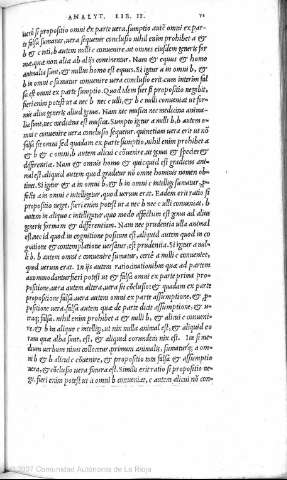 ANALYT. LIB. II.
verò si propositio omni ex parte vera sumptio autē omni ex par-
te falsa sumatur, vera sequetur conclusio nihil enim prohibet a &
b & c nti, b autem nulli c convenire, ut omnes eiusdem generis for-
mæ, quæ non aliæ ab alijs conveniunt. Nam & equus & homo
animalia sunt, & nullus homo est equus. Si igitur a in omni b, b
in omni c convenire vera conclusio erit cum interim fal-
sa est omni ex parte sumptio. Quod idem fiet si propositio negabit,
fieri enim potest ut a nec b nec c ulli, & b c nulli conveniat ut for-
mis alius generis aliud genus. Nam nec musicæ nec medicinæ animal
nec medicina est musica. Sumpto igitur a nulli b, b autem om-
ni c convenire vera conclusio sequetur. quinetiam vera erit ut nō
falsa sit omnis sed quadam ex parte sumptio, nihil enim prohibet a
& b & c omni, b autem alicui c cōvenire, ut genus & speciei &
differentiæ. Nam & omnis homo & quicquid est gradiens ani-
mal est, aliquid autem quod gradetur nō omne hominis nomen ob-
tinet. Si igitur a in omni b, & b in omni c intelligi sumatur,
a in omni c intelligitur, quod verum erat. Eadem erit ratio si
propositio neget, fieri enim potest ut a nec b nec c ulli conveniat, b
autem in aliquo c intelligatur, quo modo affectum est genus ad alius
generis formam & differentiam. Nam nec prudentia ulla animal
est nec id quod in cognitione positum est, aliquid autem quod in co
gnitione & contemplatione versatur, est prudentia. Si igitur a nul-
li b, b autem omni c convenire sumatur, certè a nulli c conveniet,
quod verum erat. In ijs autem ratiocinationibus quæ ad partem
accommodantur fieri potest ut & falsa omni ex parte prima pro-
positione, vera autem altera, vera sit cōclusio: & quadam ex parte
propositione falsa, vera autem omni ex parte assumptione, &
positione vera, falsa autem quæ de parte dicit assumptione, & u-
traq; falsa. nihil enim prohibet a & nulli b, & alicui c conveni-
re, & b in aliquo c intelligi, ut nix nulla animal est, & aliquid ex
ram quæ alba sunt, est, & aliquid corundem nix est. Ita si me
dium verbum nivis collocetur, primum animalis, sumaturq; a om-
ni b & b alicui c cōvenire, & propositio tota falsa & assumptio
vera, & cōclusio vera futura est. Similis erit ratio si propositio ne-
get. fieri enim potest ut a omni b conveniat, c autem alicui nō con-
2007 Comunidad Autónoma de La Rioja